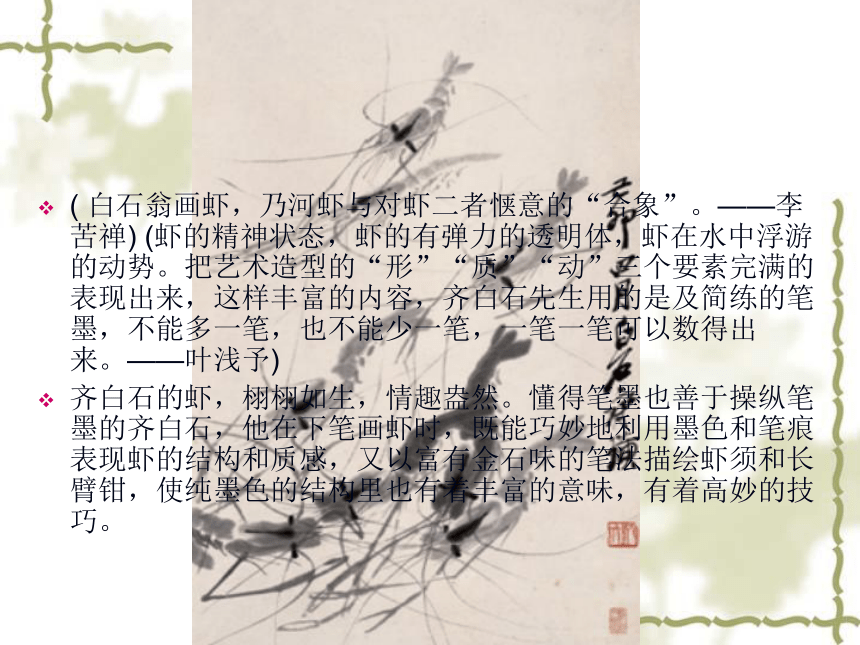 ( 白石翁画虾，乃河虾与对虾二者惬意的“合象”。——李
苦禅) (虾的精神状态，虾的有弹力的透明体，虾在水中浮游
的动势。把艺术造型的“形”“质”“动”三个要素完满的
表现出来，这样丰富的内容，齐白石先生用的是及简练的笔
墨，不能多一笔，也不能少一笔，一笔一笔可以数得出
来。——叶浅予)
齐白石的虾，栩栩如生，情趣盎然。懂得笔墨也善于操纵笔
墨的齐白石，他在下笔画虾时，既能巧妙地利用墨色和笔痕
表现虾的结构和质感，又以富有金石味的笔法描绘虾须和长
臂钳，使纯墨色的结构里也有着丰富的意味，有着高妙的技
巧。